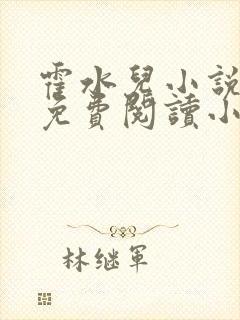 霍水兒小說
免費閱讀小
林继军